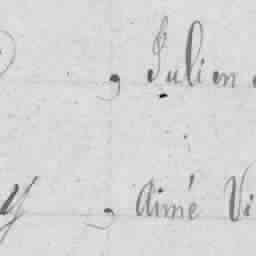 , Julien
y , Aimé Vi